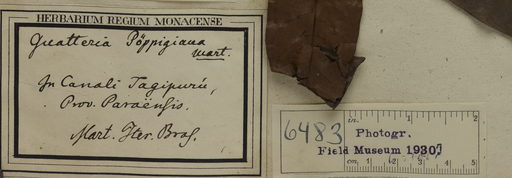 HERBARIUM REGIUM MONACENSE
Guatteria Pöppigiana
Mart.
In Canali Tagipurú,
Prov. Paraënsis.
Mart. Iter. Bras.
6483
Photogr.
Field Museum 1930,
in. 1 2
cm. 1 2 3 4 5